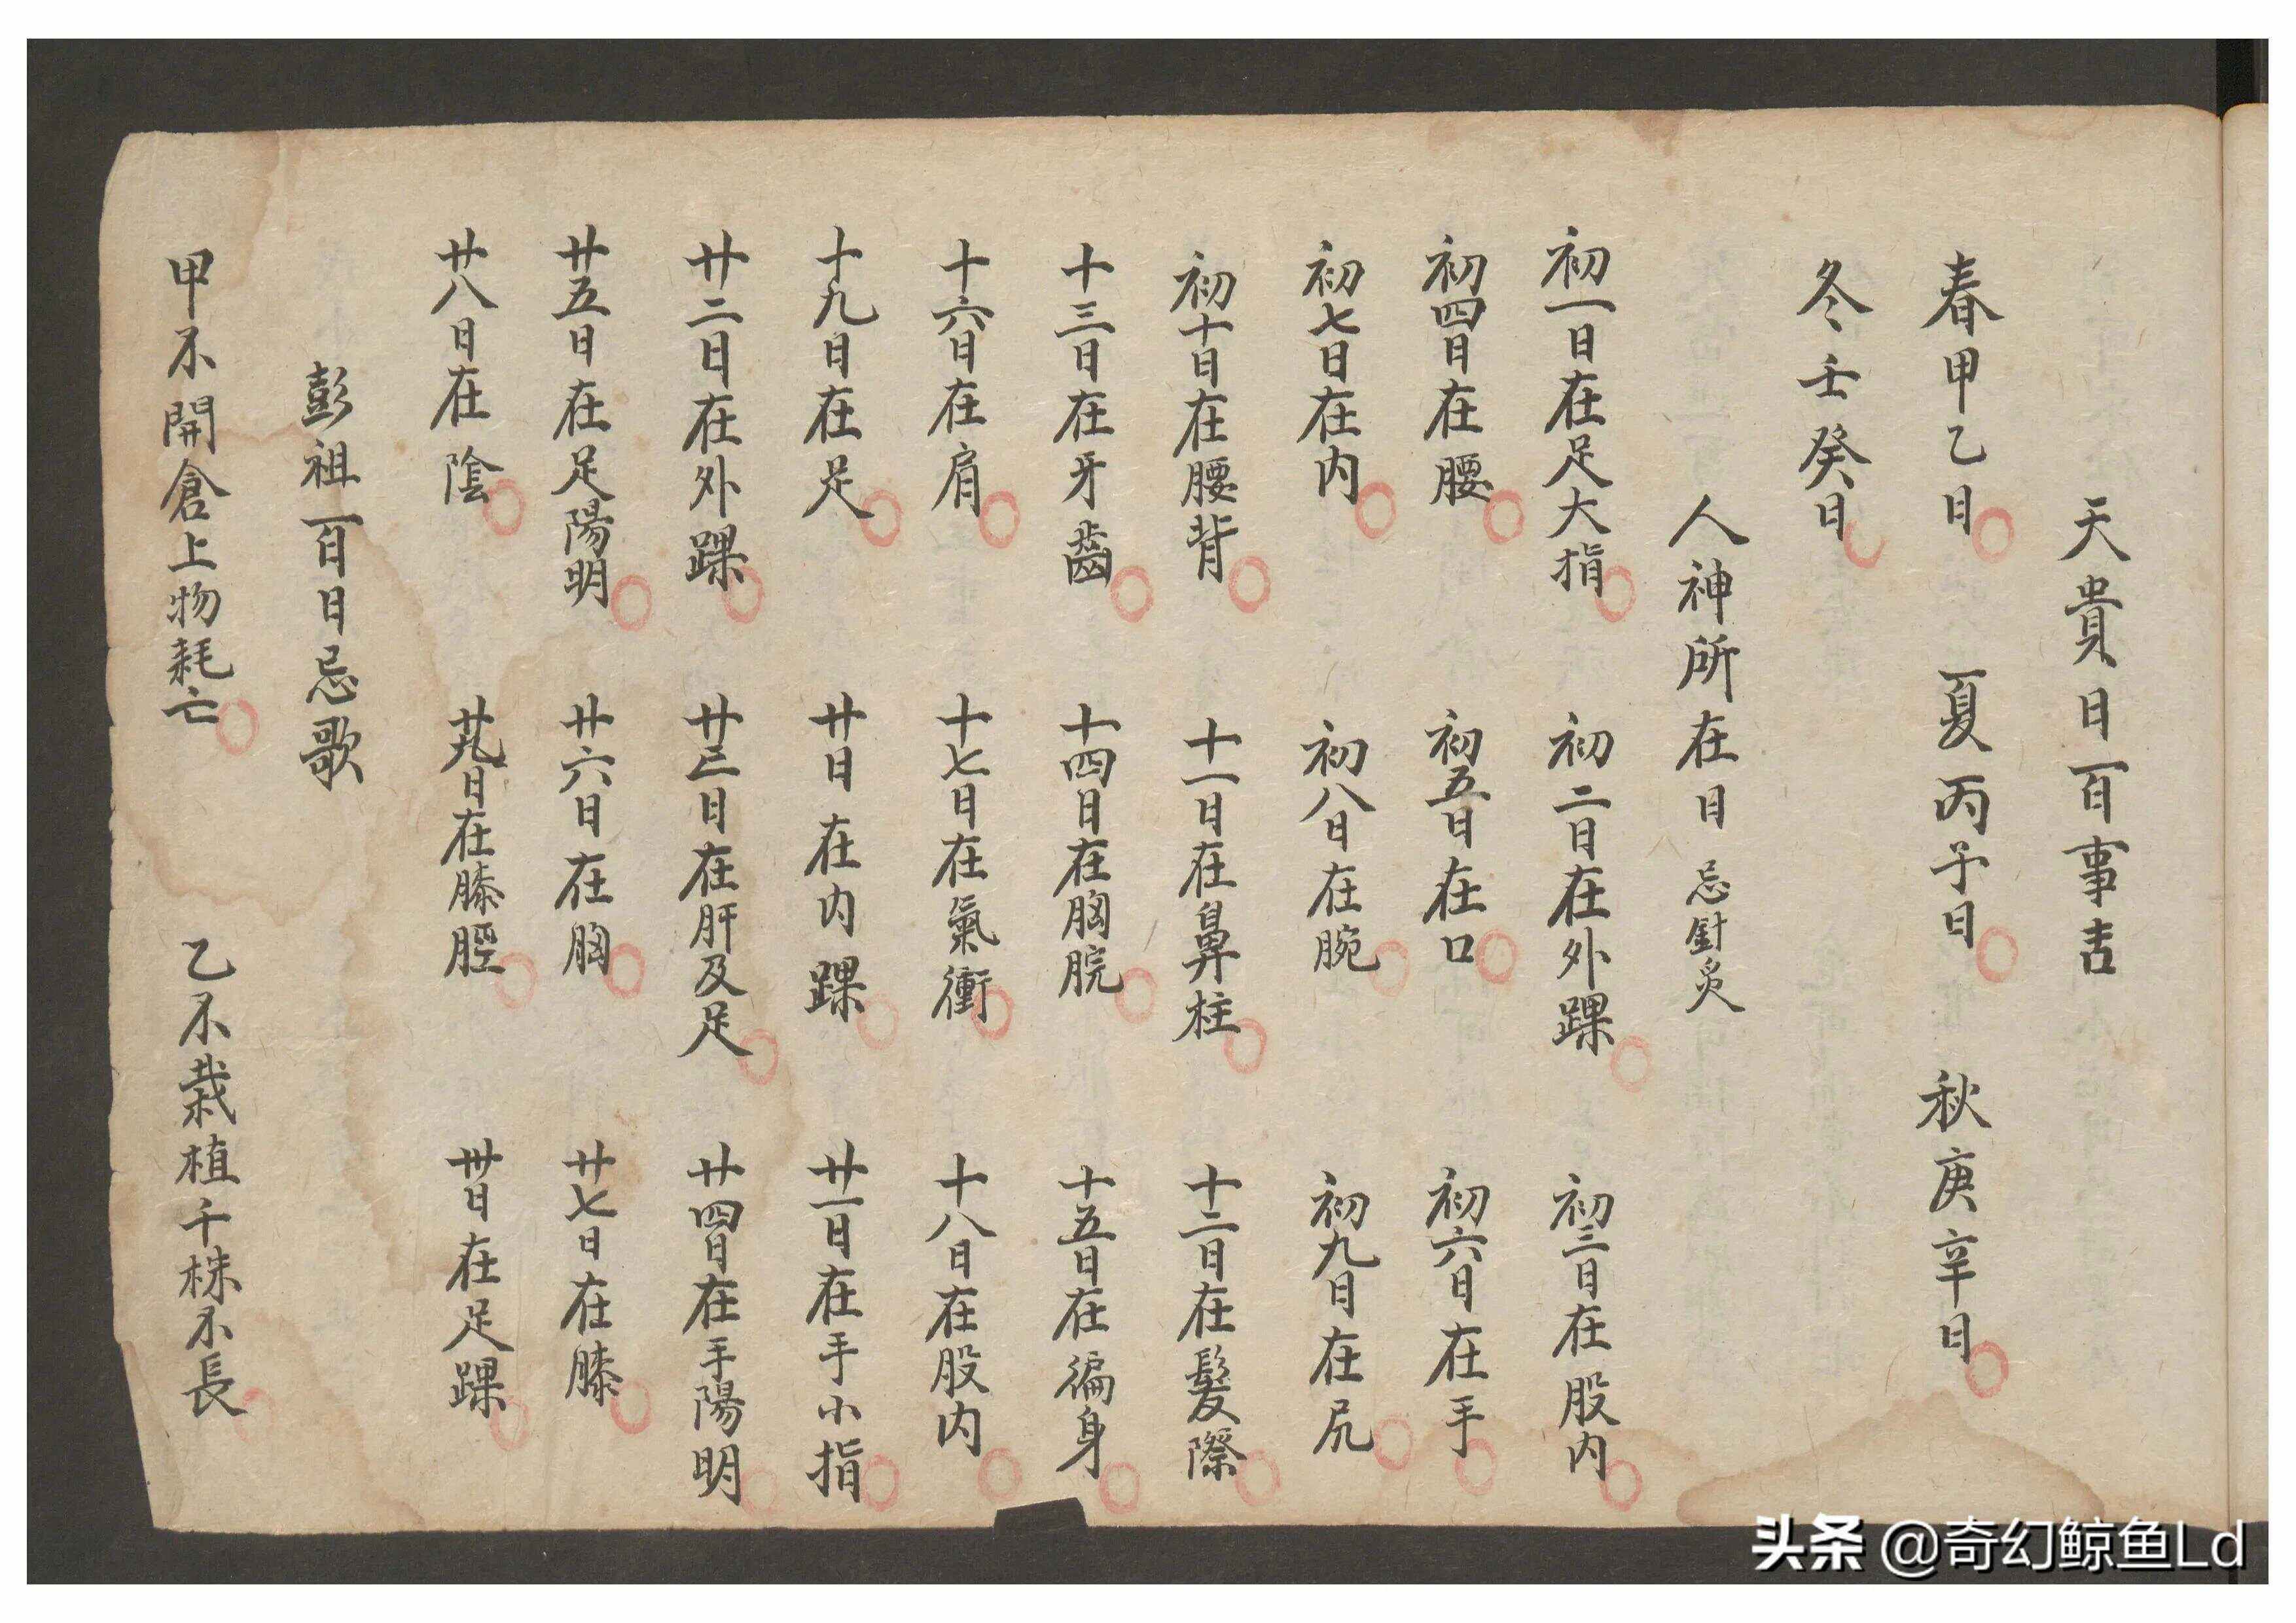 天貴日百事吉
春甲乙日　夏丙子日　秋庚辛日
冬壬癸日
人神所在日　忌針灸
初一日在足大指　初二日在外踝　初三日在股内
初四日在腰　初五日在口　初六日在手
初七日在内　初八日在腕　初九日在尻
初十日在腰背　十一日在鼻柱　十二日在髮際
十三日在牙齒　十四日在胸脘　十五日在徧身
十六日在肩　十七日在氣衝　十八日在股内
十九日在足　廿日在内踝　廿一日在手小指
廿二日在外踝　廿三日在肝及足　廿四日在手陽明
廿五日在足陽明　廿六日在胸　廿七日在膝
廿八日在陰　廿九日在膝脛　卅日在足踝
彭祖百日忌歌
甲不開倉上物耗亡　乙不栽植千株不長
头条 @奇幻鲸鱼Ld